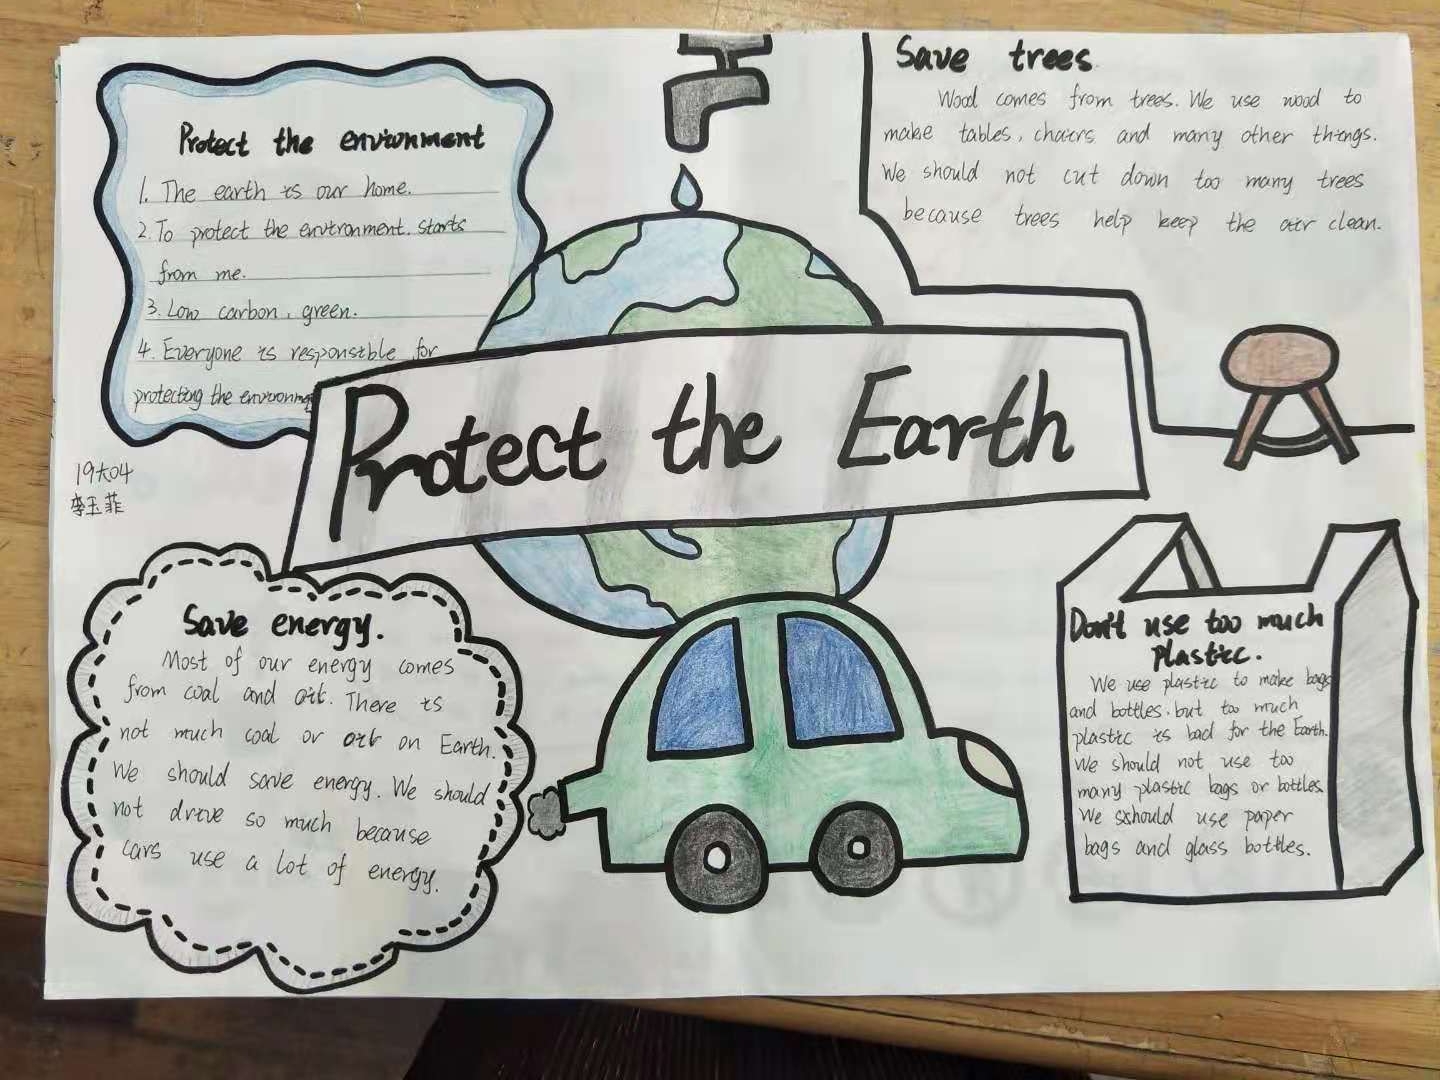 Protect the environment
1. The earth is our home.
2. To protect the environment. starts
from me.
3. Low carbon, green.
4. Everyone is responsible for
protecting the environme
19大04
李玉菲
Save trees
Wood comes from trees. We use wood to
make tables, chairs and many other things.
We should not cut down too many trees
because trees help keep the air clean.
Protect the Earth
Save energy.
Most of our energy comes
from coal and oil. There is
not much coal or oil on Earth.
We should save energy. We should
not drive so much because
cars use a lot of energy.
Don't use too much
plastic.
We use plastic to make bags
and bottles. but too much
plastic is bad for the Earth.
We should not use too
many plastic bags or bottles.
We sshould use paper
bags and glass bottles.